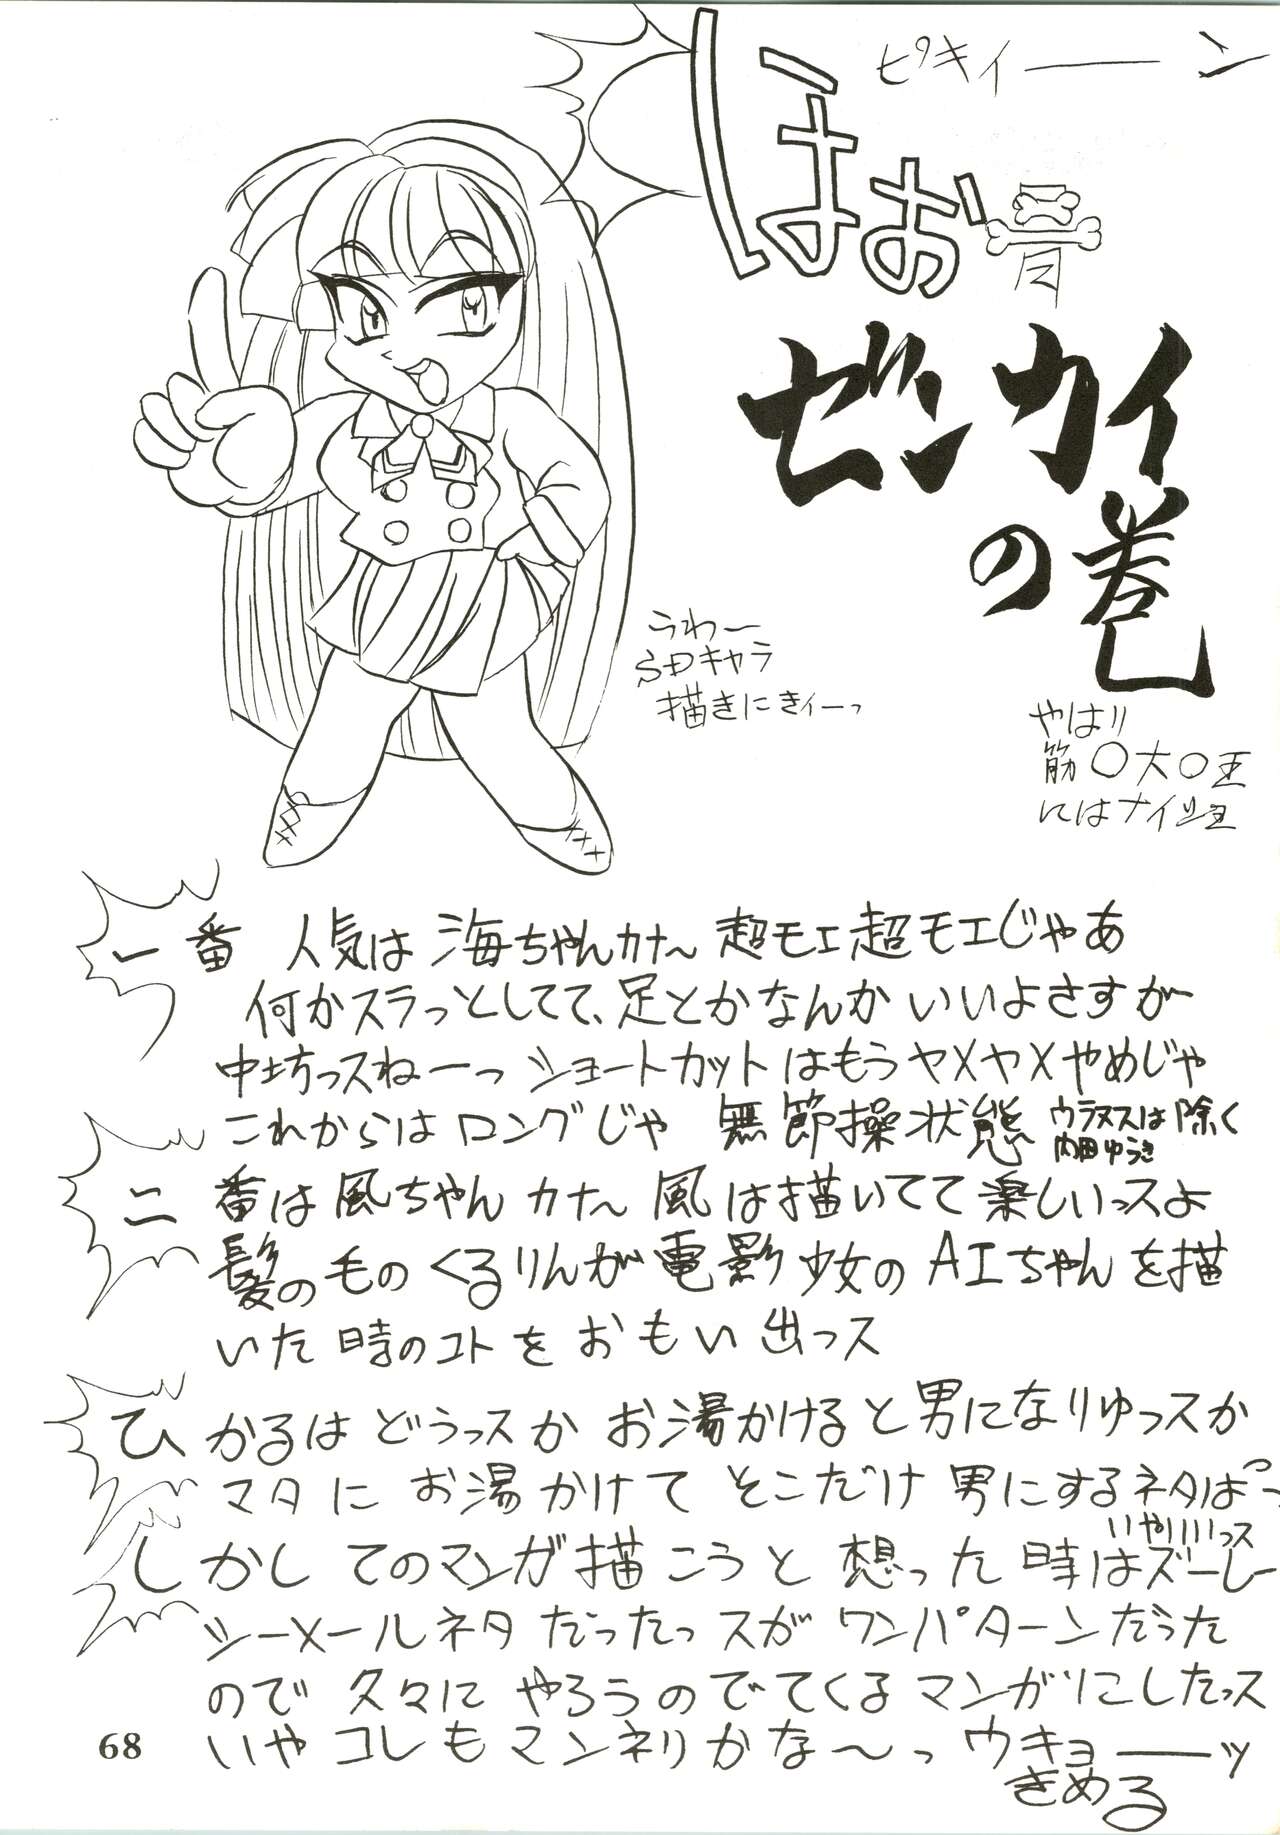 ピキィーーン
ほお骨
ゼンカイ
の巻
うわー
SDキャラ
描きにきィーっ
やはり
筋〇大〇王
にはナイショ
一番 人気は 海ちゃんカナ〜 超モエ超モエじゃあ
何かスラっとしてて、足とかなんか いいよさすが
中坊っスねーっ ショートカットはもうヤメヤメやめじゃ
これからは ロングじゃ 無節操状態 ウラヌスは除く
内田ゆうき
二番は風ちゃんカナ〜 風は描いてて楽しいっスよ
髪の毛のくるりんが電影少女のAIちゃんを描
いた時のコトをおもい出っス
ひかるは どうっスか お湯かけると男になりゆっスか
マタに お湯かけて そこだけ 男にするネタはっ
いやりっス
しかし てのマンガ描こうと 想った時はズーレー
シーメールネタ だったっスが ワンパターンだった
ので 久々に やろうのでてくる マンガにしたっス
いや コレもマンネリかな〜っ ウキョーーッ
きめる
68